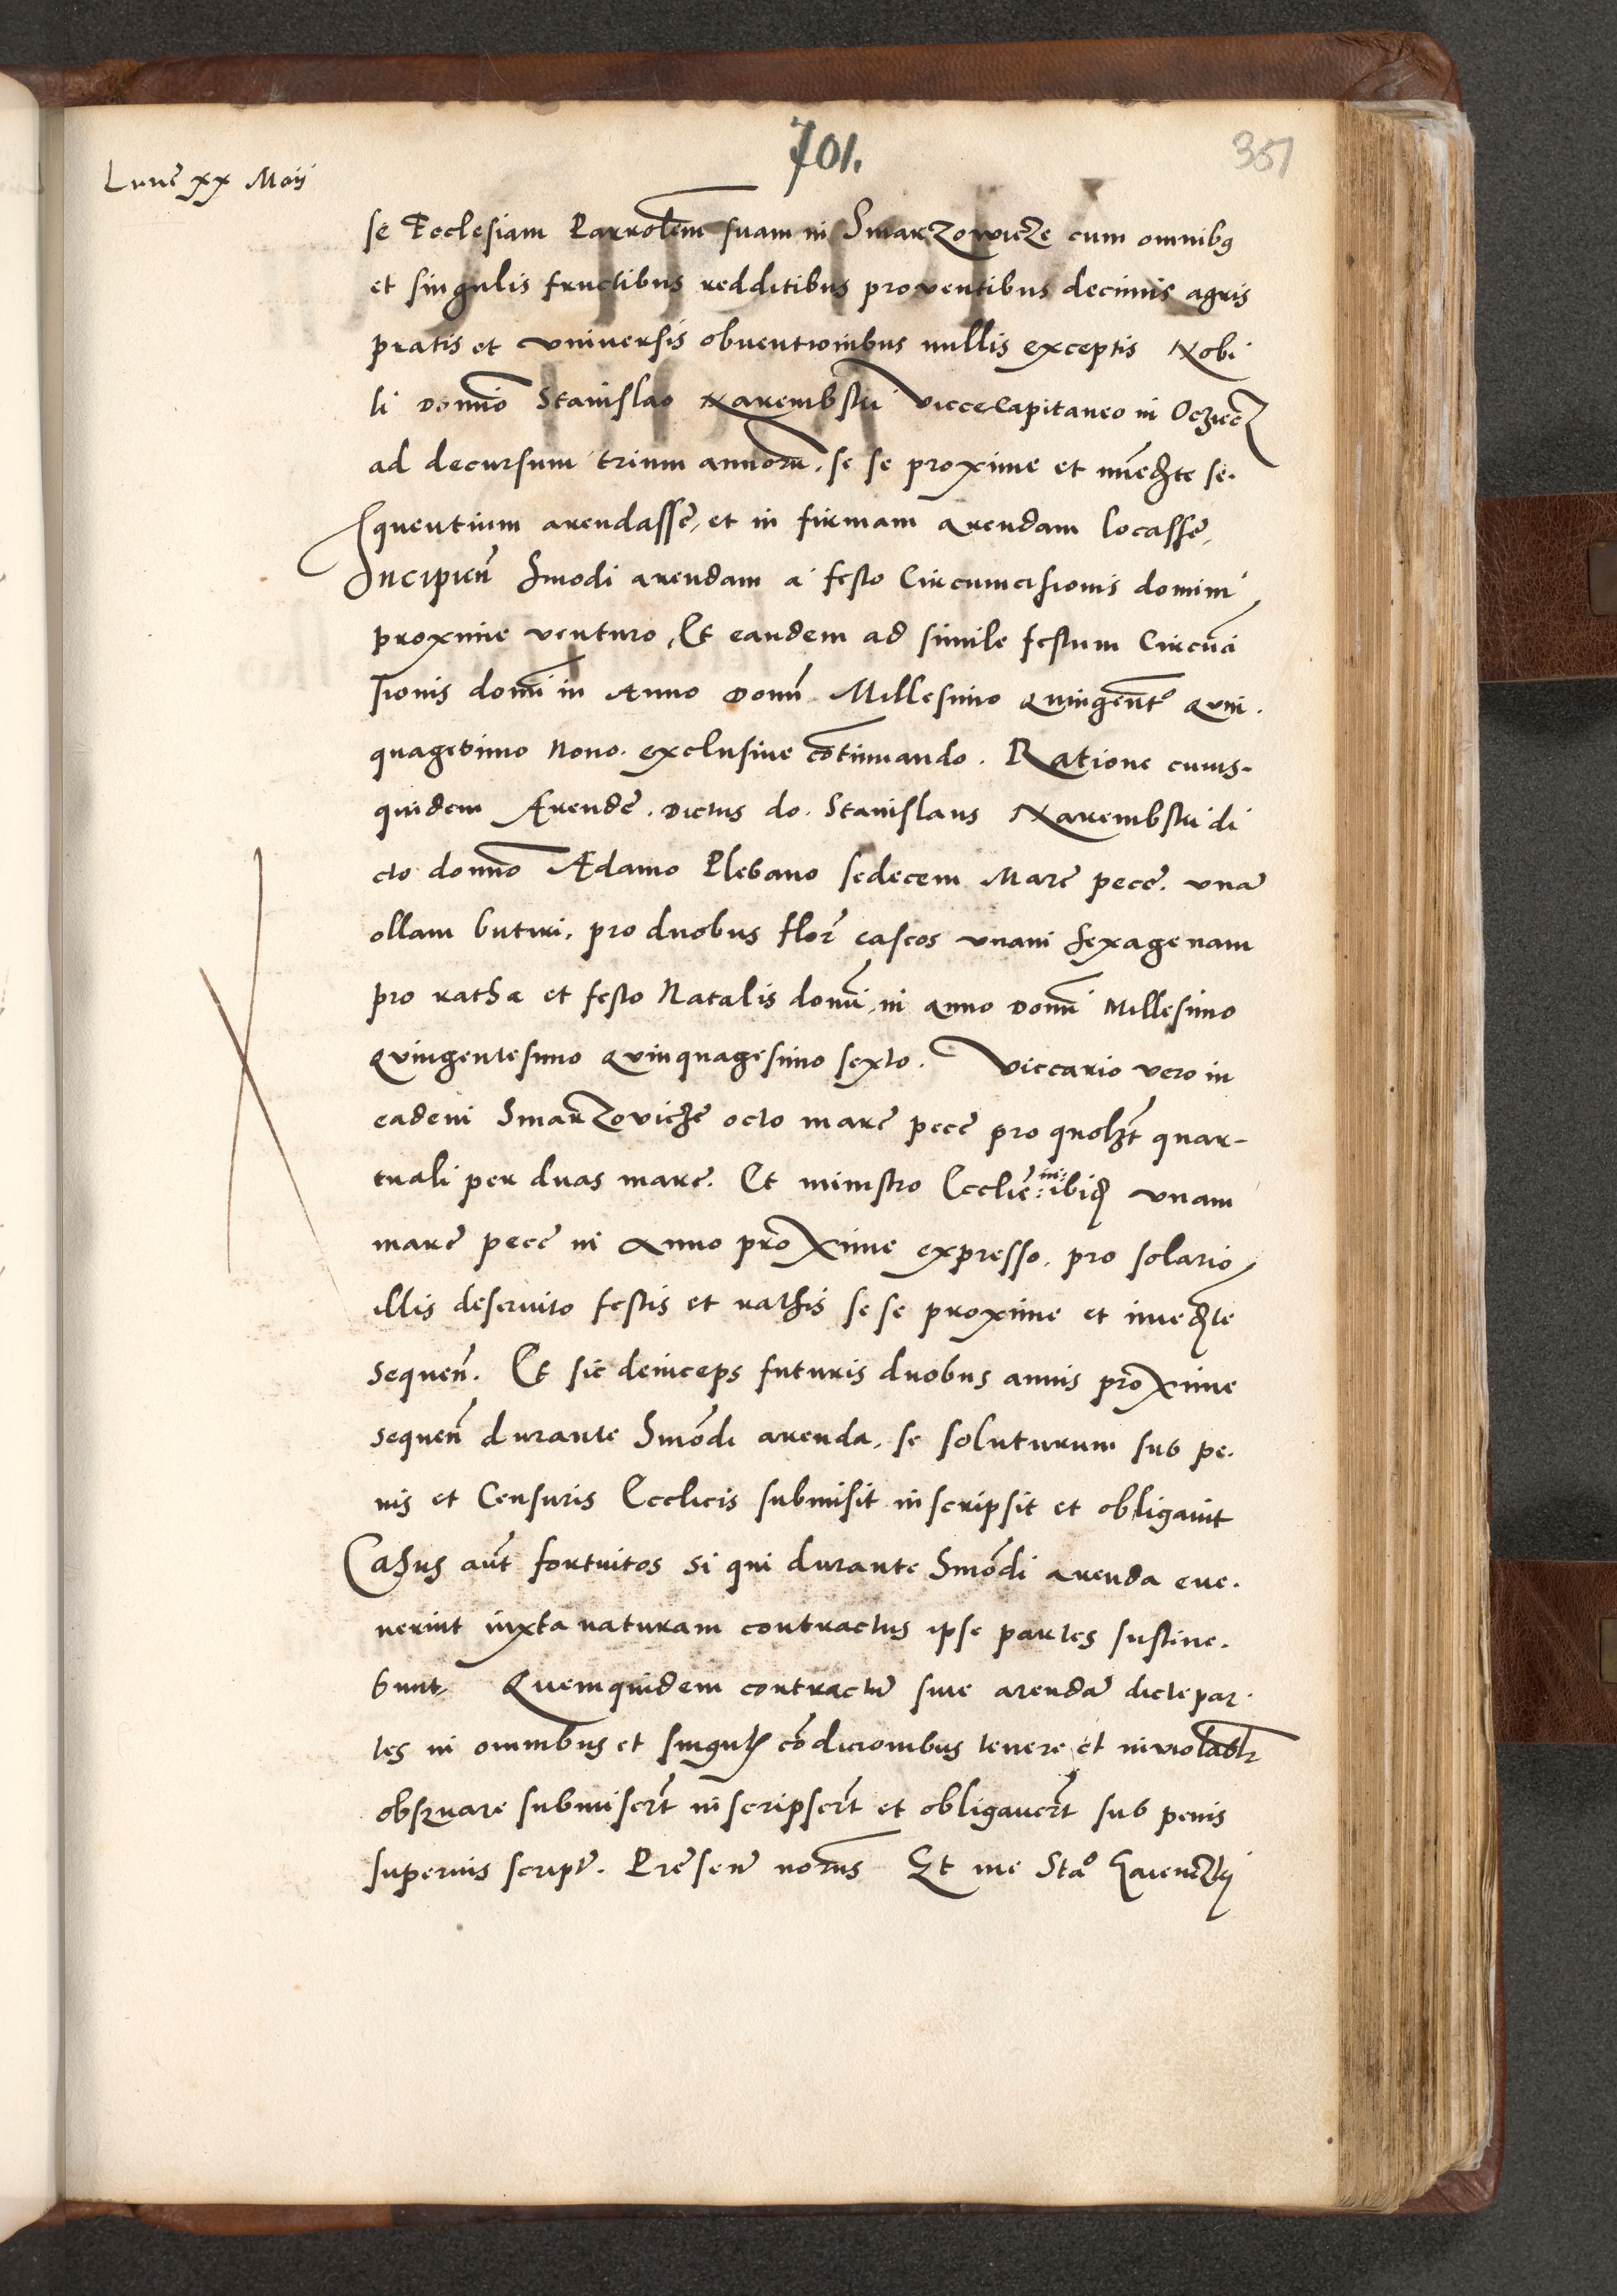 701.
351
Lune xx Maij
se Ecclesiam Parrolem suam in Smarzowicze cum omnibus
et singulis fructibus redditibus proventibus decimis agris
pratis et universis obventionibus nullis exceptis Nobi
li domino Stanislao Xarembski Viccecapitaneo in
ad decursum trium annoru. se se proxime et se.
quentium arendasse, et in firmam arendam locasse,
Incipien hmodi arendam a festo Circumcisionis domini
proxime venturo, Et eandem ad simile festum Circuci
sionis domi in Anno domi Millesimo quingento quin.
quagesimo Nono. exclusive cotinuando. Ratione cuius.
quidem Arende. dictus do. Stanislaus Xarembski di
cto domno Adamo Plebano sedecem Marc pecc. una
ollam buturi, pro duobus flor caseos unam sexagenam
pro ratha et festo Natalis domi, in anno domi Millesimo
quingentesimo quinquagesimo sexto. Viccario vero in
eadem Smarzovicze octo marc pecc pro quolzt quar-
tuali per duas marc. Et ministro Ecclie :in: ibid unam
marc pecc in Anno proxime expresso. pro solario
illis deservito festis et rathis se se proxime et
sequen. Et sic deinceps futuris duobus annis proxime
sequen durante hmodi arenda, se soluturum sub pe.
nis et Censuris Ecclicis submisit inscripsit et obligavit
Casus aut fortuitos si qui durante hmodi arenda eve.
nerint iuxta naturam contractus ipse partes sustine.
bunt. Quemquidem contractu sive arenda dicte par.
tes in omnibus et singulis condicionibus tenere et inviolablr
observare submisert inscripsert et obligavert sub penis
superius script. Presen Et me Stao